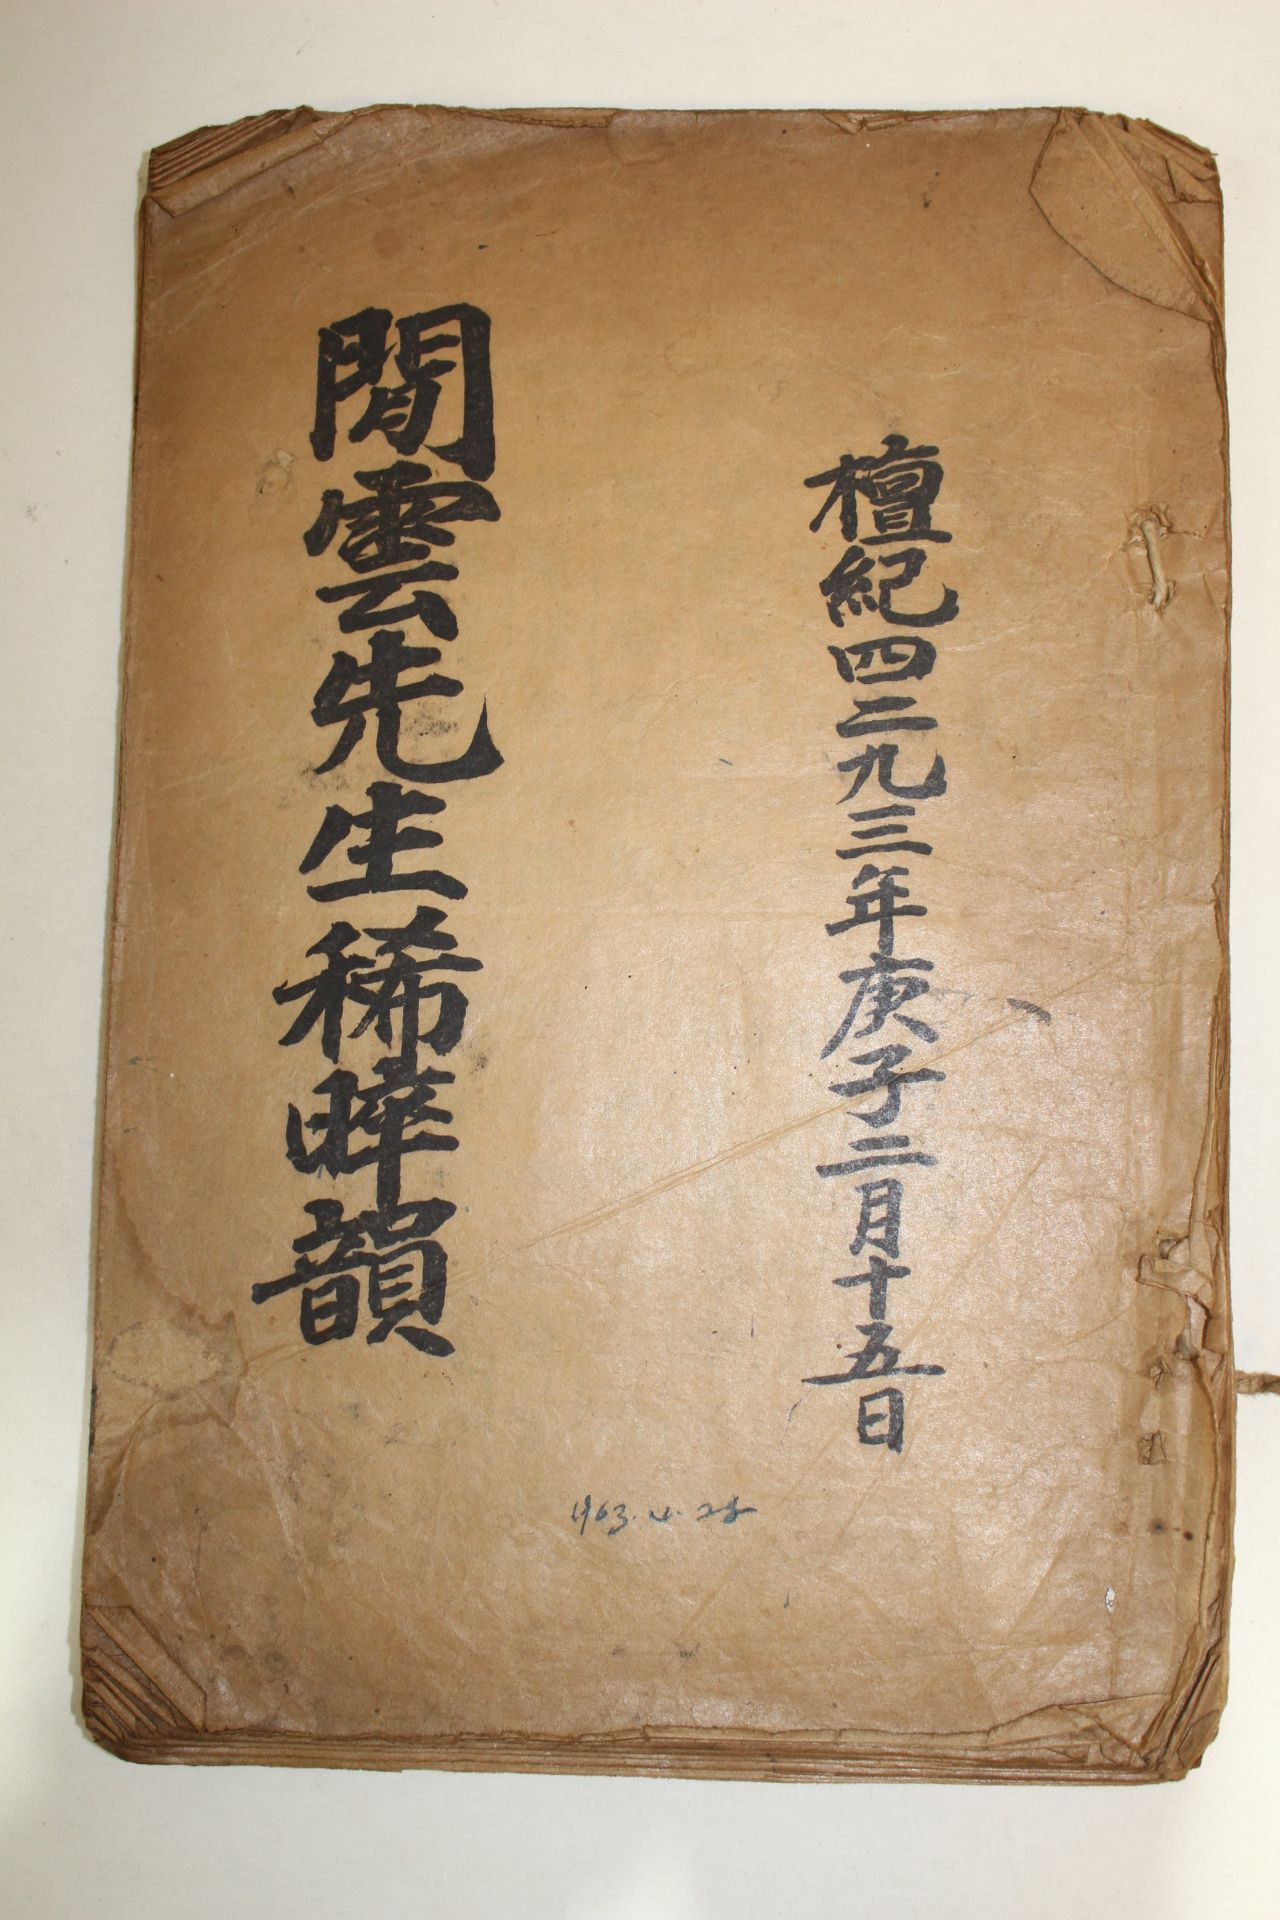 檀紀四二九三年庚子二月十五日
閒雲先生稀晬韻
1963. 4. 28